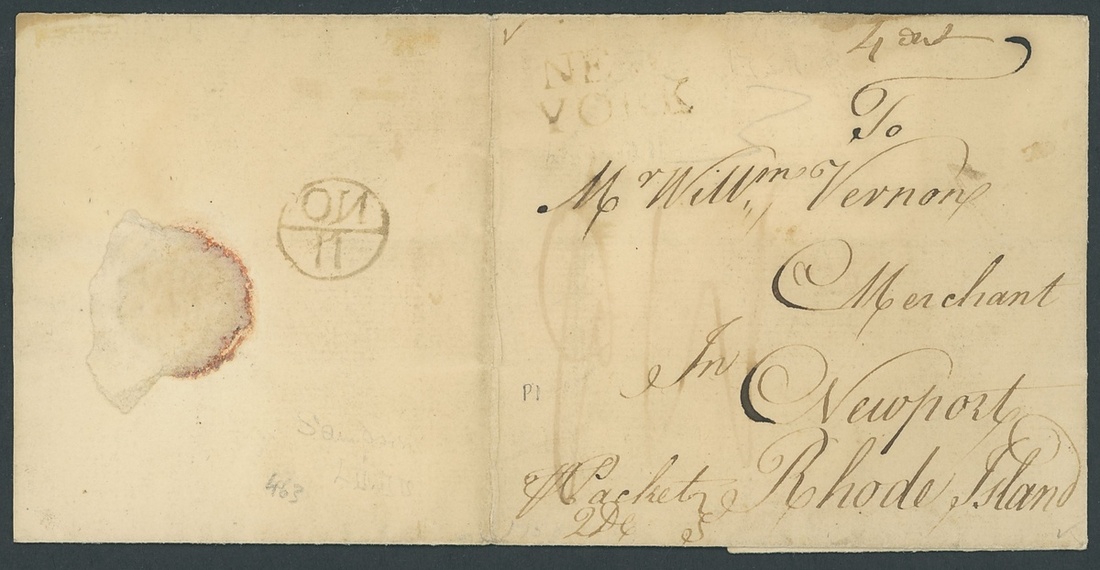 4 dwt
NEW
YORK
To
Mr Willm Vernon
Merchant
In
Newport
Rhode Island
Packet
NO
11
463
P1